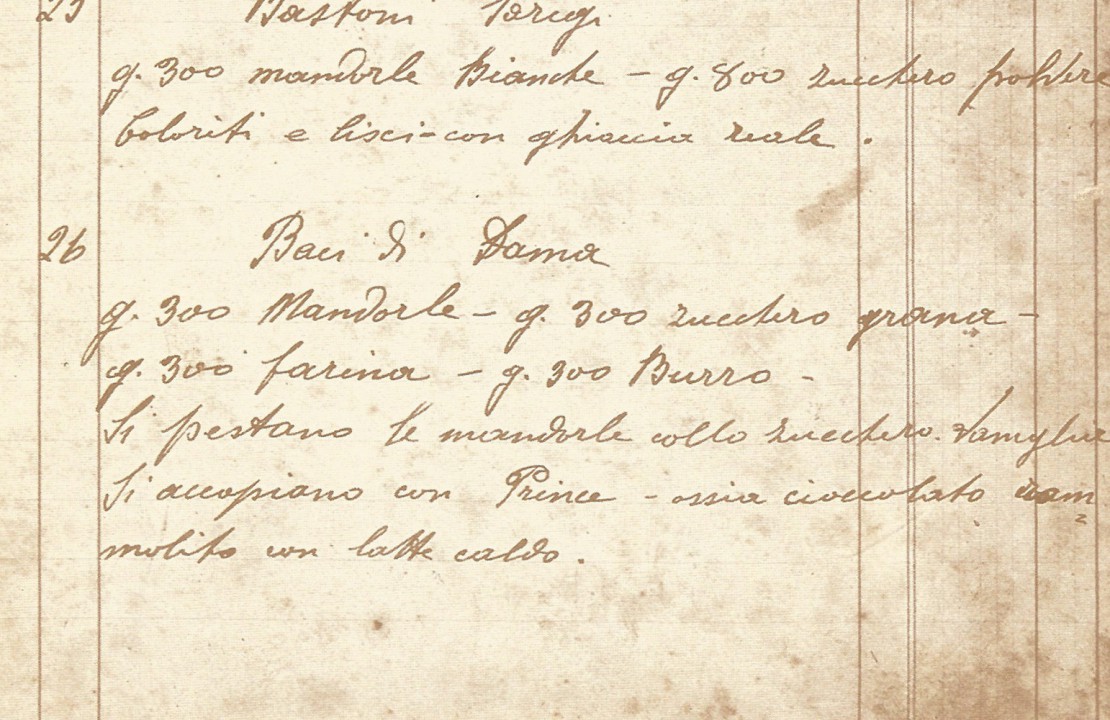 25 Bastoni Parigi
g. 300 mandorle Bianche - g. 800 zucchero polvere
Coloriti e lisci - con ghiaccia reale .
26 Baci di Dama
g. 300 Mandorle - g. 300 zucchero grana -
g. 300 farina - g. 300 Burro -
Si pestano le mandorle collo zucchero. Vaniglia
Si accopiano con Prince - ossia cioccolato ram=
molito con latte caldo .